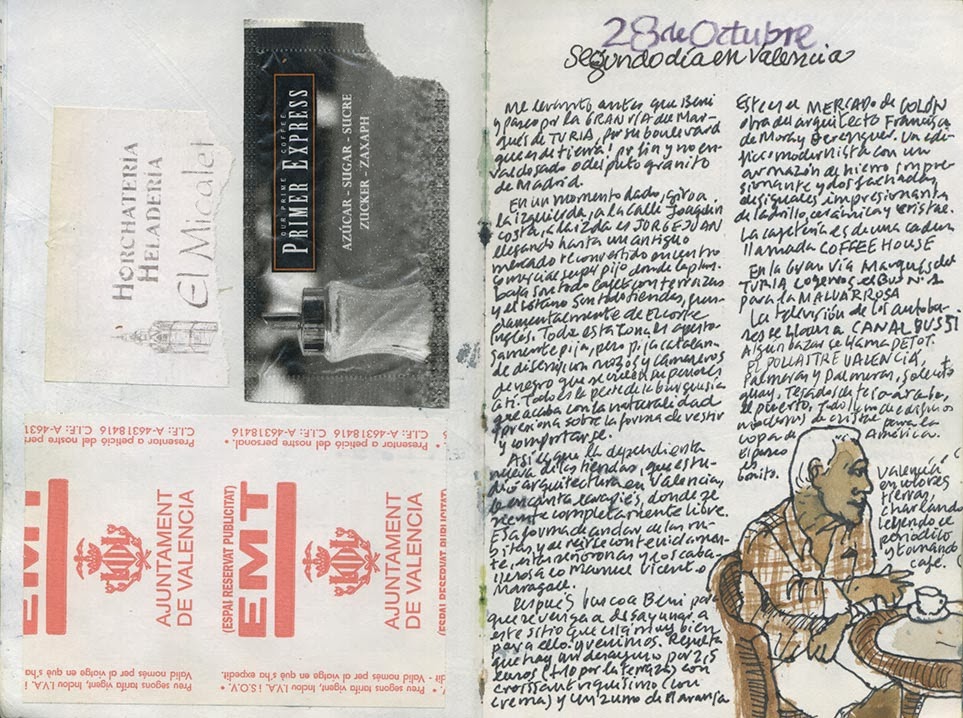 HORCHATERIA
HELADERÍA
El Micalet
OUR PRIME COFFEE
PRIMER EXPRESS
AZÚCAR - SUGAR - SUCRE
ZUCKER - ZAXAPH
C.I.F.: A-46318416 C.I.F.: A-46318416 C.I.F.: A-4631
Presentar a petició del nostre personal. * Presentar a petició del nostre pers
EMT
AJUNTAMENT
DE VALENCIA
(ESPAI RESERVAT PUBLICITAT)
EMT
AJUNTAMENT
DE VALENCIA
(ESPAI RESERVAT PUBLICITAT)
Preu segons tarifa vigent, Inclou viatge, I.V.A. i S.O.V. *
Valid només per al viatge en què s'ha expedit.
28 de Octubre
Segondo día en Valencia
Me levanto antes que Beni
y paseo por la GRAN VÍA del Mar-
qués de TURIA, por su boulevard
que es de tierra! por fin y no en-
valdosado o del puto granito
de Madrid.
En un momento dado, giro a
la izquierda, a la calle Joaquín
Costa, a la izda es JORGE JUAN
llegando hasta un antiguo
mercado reconvertido en centro
comercial super pijo donde la plan.
baja son todo cafés con terrazas
y el sótano son todo tiendas, fun-
damentalmente de El corte
Ingles. Toda esta zona es aparto-
samente pija, pero pija catalan-
de diseño, con mozos y camareros
de negro que se creen superiores
a ti. Todo es la peste de la burguesia
que acaba con la naturalidad
y presiona sobre la forma de vestir
y comportarse.
Así es que la dependienta
nueva de las tiendas, que estu-
dió arquitectura en Valencia,
le encanta Lavapiés, donde se
siente completamente libre.
Esa forma de andar de las
y el reirse contenidamen-
te, mis señoronas y los caba-
lleros a lo Manuel Vicent o
Maragall.
Después busco a Beni para
que se venga a desayunar a
este sitio que está muy bien
para ello. y venimos. Resulta
que hay un desayuno por 2,5
euros (+10 por la terraza) con
croissant riquísimo (con
crema) y un zumo de naranja
Este es el MERCADO de COLÓN
obra del arquitecto Francisco
de Mora y Berenguer. Un edi-
ficio modernista con un
armazón de hierro impre-
sionante y dos fachadas
desiguales impresionantes
de ladrillo, cerámica y cristal.
La cafetería es de una cadena
llamada COFFEE HOUSE
En la Gran Vía Marqués del
TURIA cogemos el BUS Nº 1
para la MALVARROSA
La televisión de los autobu-
ses se llama CANAL BUSSI
Algun bazar se llama DETOT.
EL POLLASTRE VALENCIA,
Palmeras y Palmeras, solecito
guay, Tejados de teja árabe,
el puerto, Todo lleno de edificios
modernos de cristal para la
copa de América.
El paseo
es
bonito.
Valencia
en colores
tierras,
charlando
leyendo el
periódico
y tomando
café.